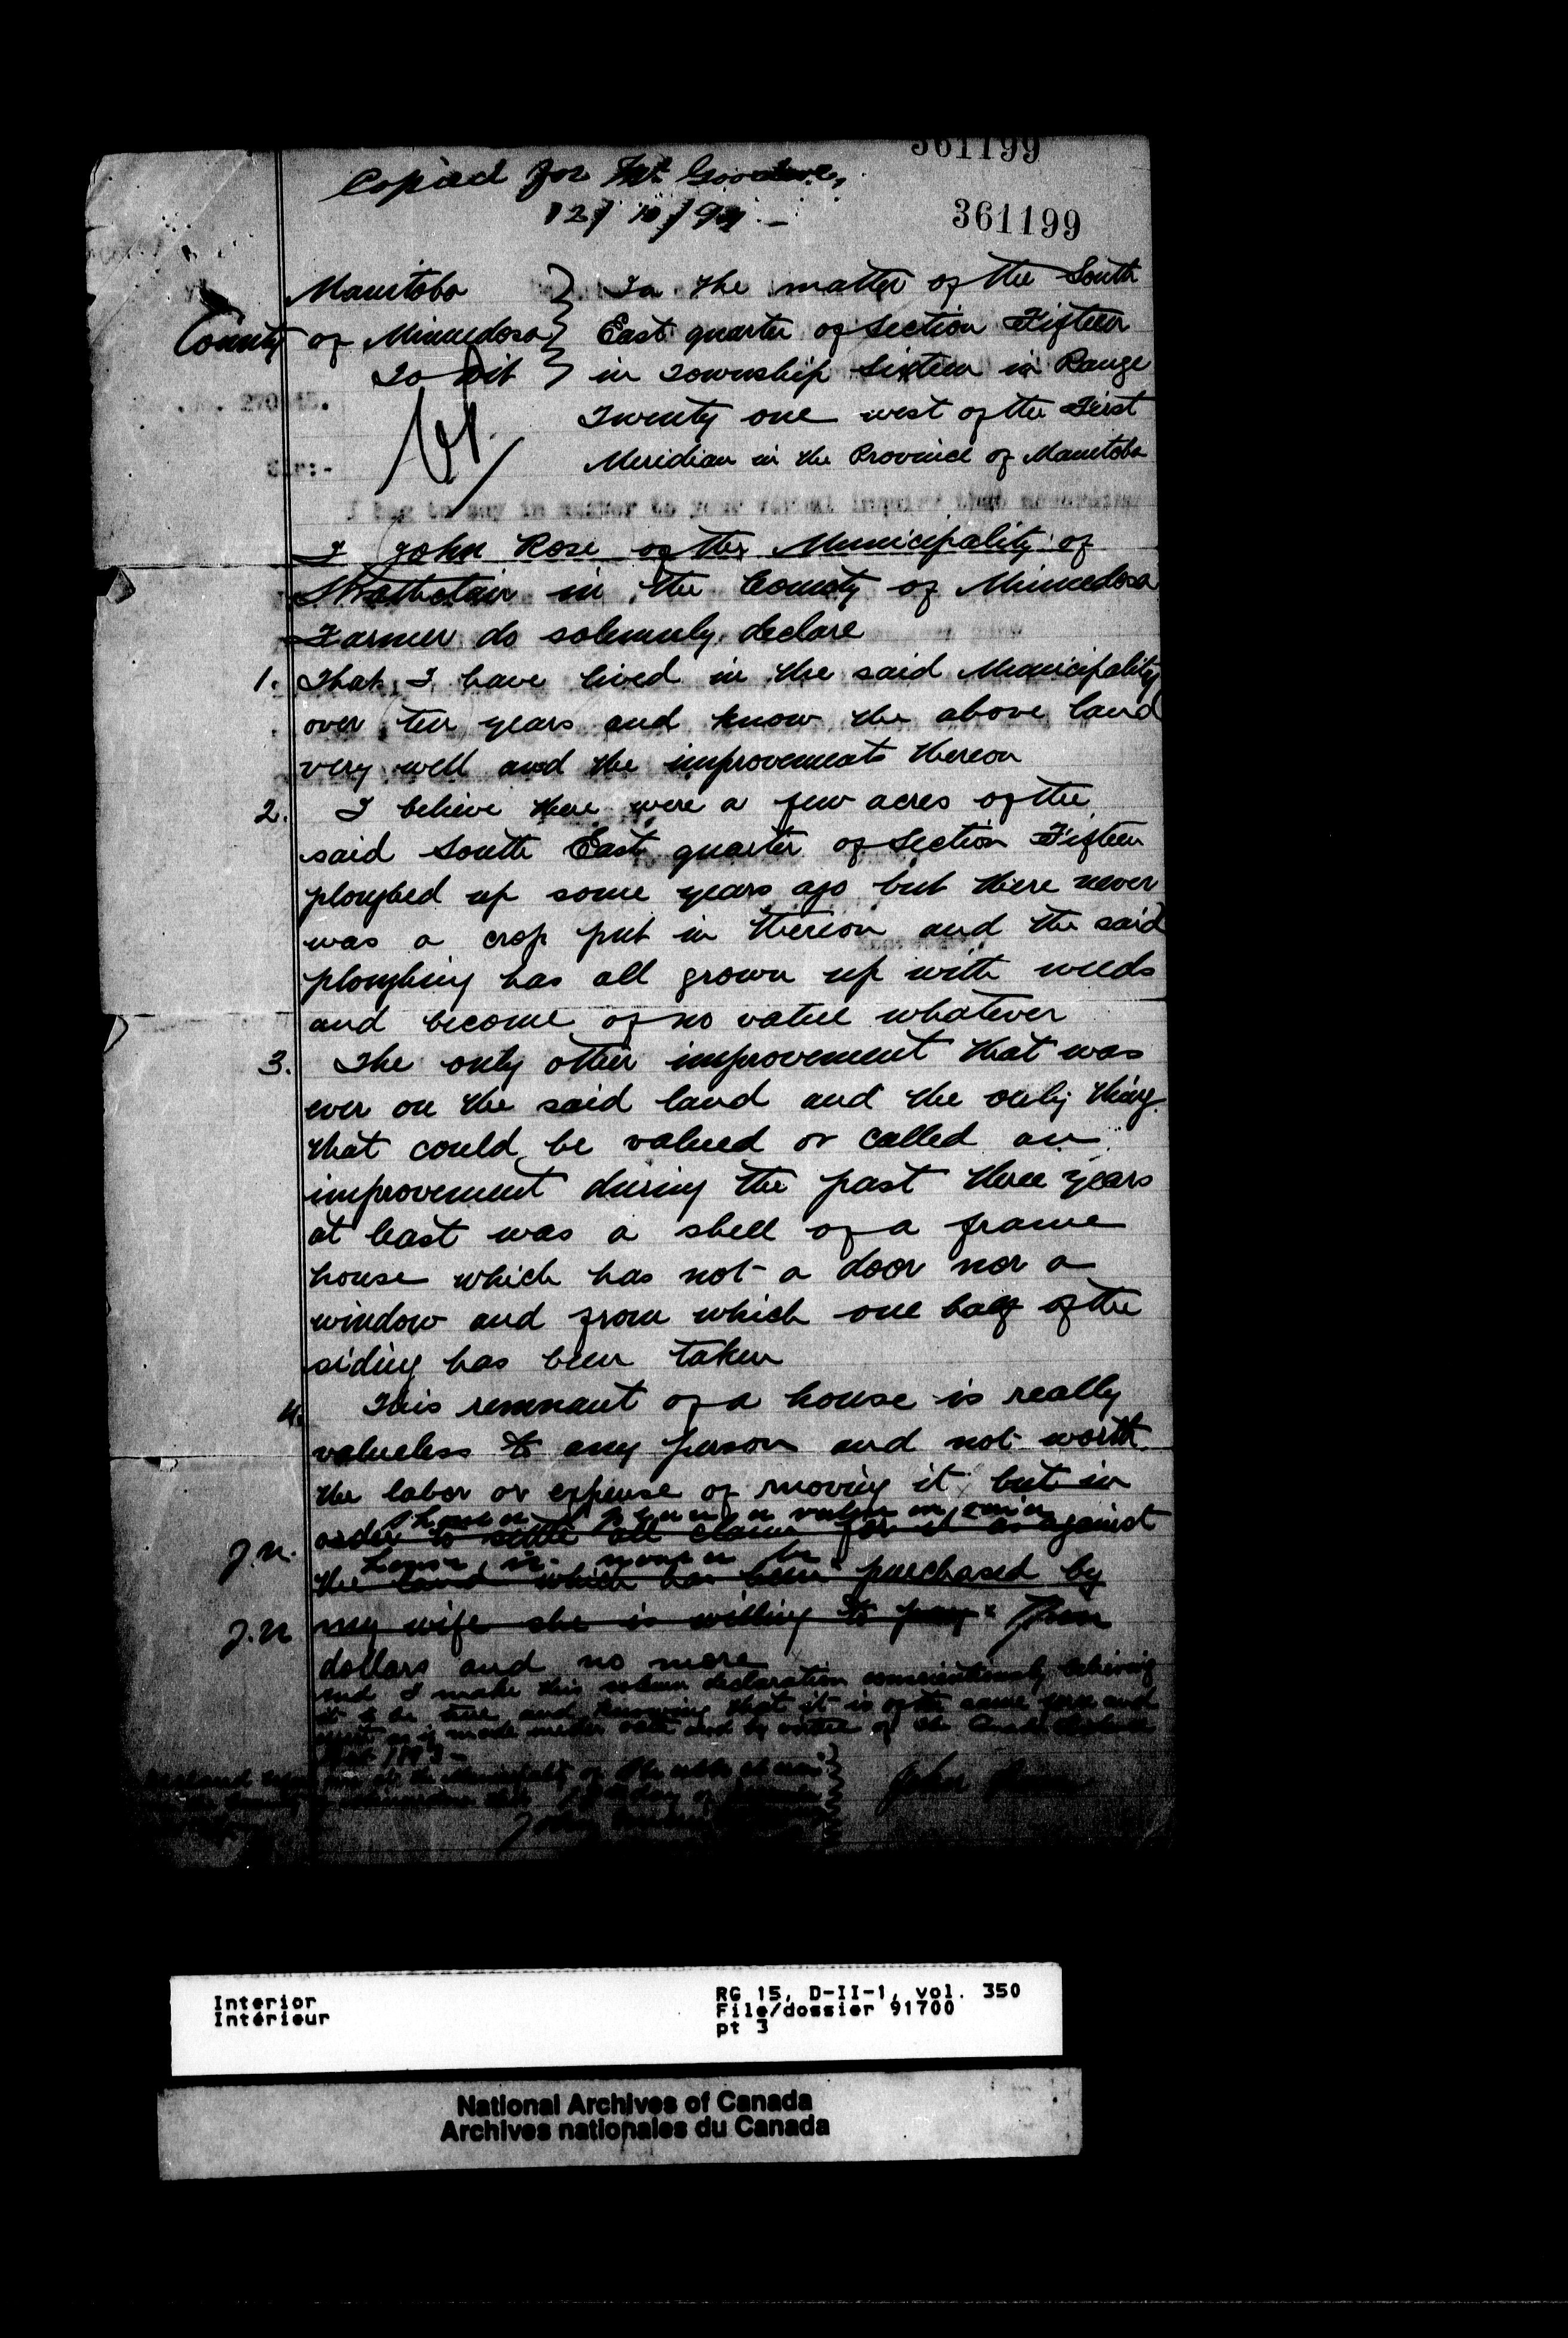 361199
Copied for Mr
12/10/94 -
361199
Manitoba } In the matter of the South
County of Minnedosa } East quarter of Section Fifteen
To Wit } in Township Sixteen in Range
Twenty one west of the First
Meridian in the Province of Manitoba
I John Rose of the Municipality of
Strathclair in the County of Minnedosa
Farmer do solemnly declare
1. That I have lived in the said Municipality
over ten years and know the above land
very well and the improvements thereon
2. I believe there were a few acres of the
said South East quarter of Section Fifteen
ploughed up some years ago but there never
was a crop put in thereon and the said
ploughing has all grown up with weeds
and become of no value whatever
3. The only other improvement that was
ever on the said land and the only thing
that could be valued or called an
improvement during the past three years
at least was a shell of a frame
house which has not a door nor a
window and from which one half of the
siding has been taken
4. This remnant of a house is really
valueless to any person and not worth
the labor or expense of moving it but in
order to settle all claims for it as against
J.N. the land which has been purchased by
J.N. my wife she is willing to pay
dollars and no more
And I make this solemn declaration conscientiously believing
it to be true and knowing that it is of the same force and
effect as if made under oath and by virtue of the Canada Evidence
Act 1893 -
John Rose
Interior
Intérieur
RG 15, D-II-1, vol. 350
File/dossier 91700
pt 3
National Archives of Canada
Archives nationales du Canada